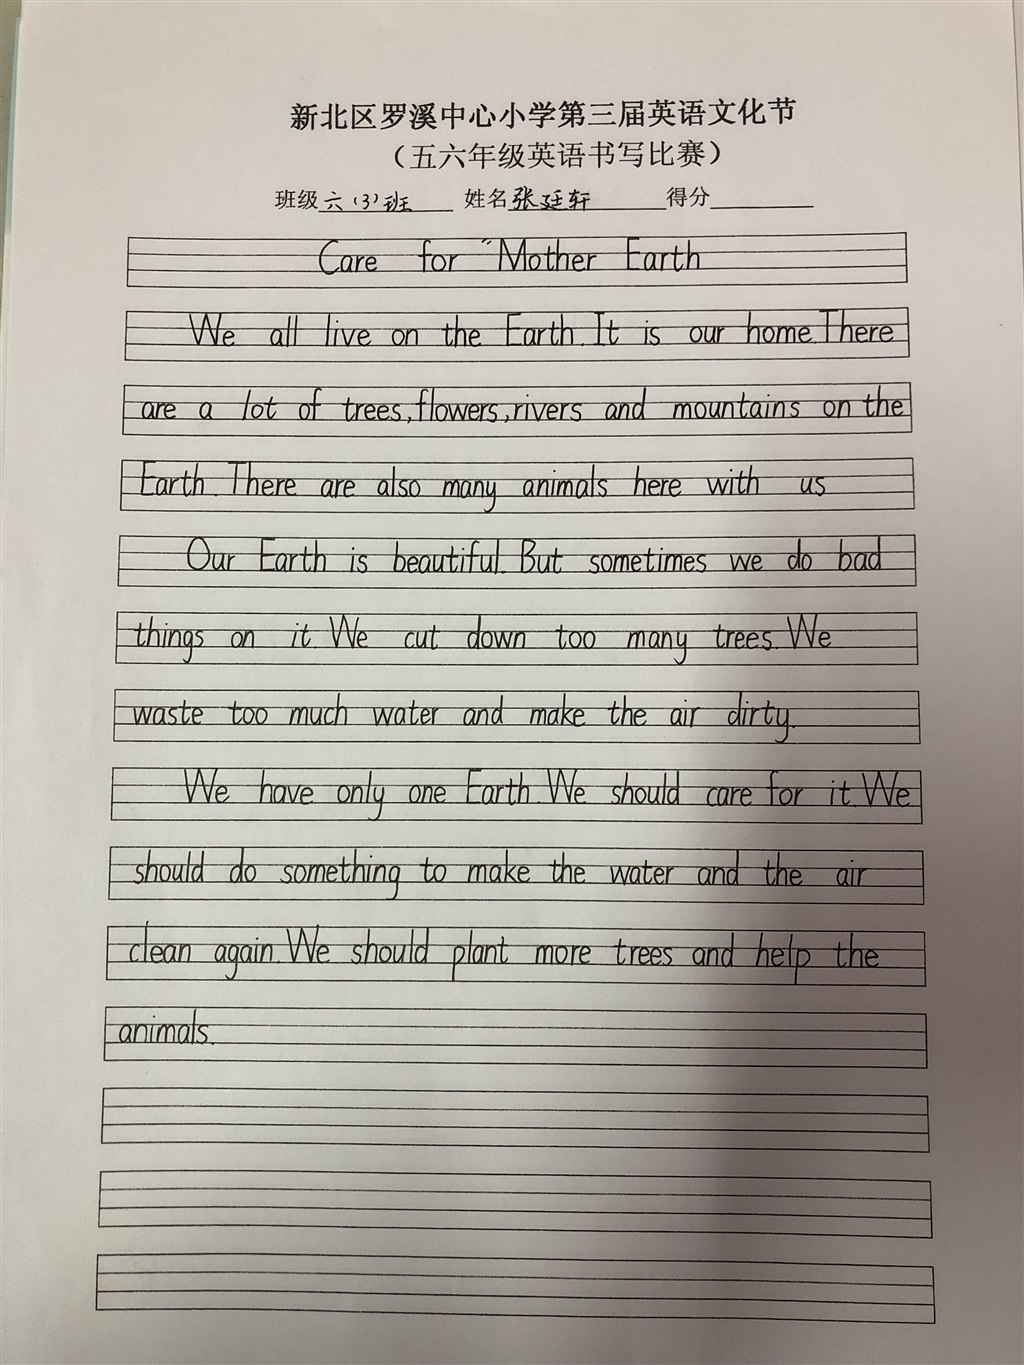 新北区罗溪中心小学第三届英语文化节
（五六年级英语书写比赛）
班级 六（3）班 姓名 张廷轩 得分
Care for "Mother Earth
We all live on the Earth. It is our home. There
are a lot of trees, flowers, rivers and mountains on the
Earth. There are also many animals here with us
Our Earth is beautiful. But sometimes we do bad
things on it. We cut down too many trees. We
waste too much water and make the air dirty.
We have only one Earth. We should care for it. We
should do something to make the water and the air
clean again. We should plant more trees and help the
animals.